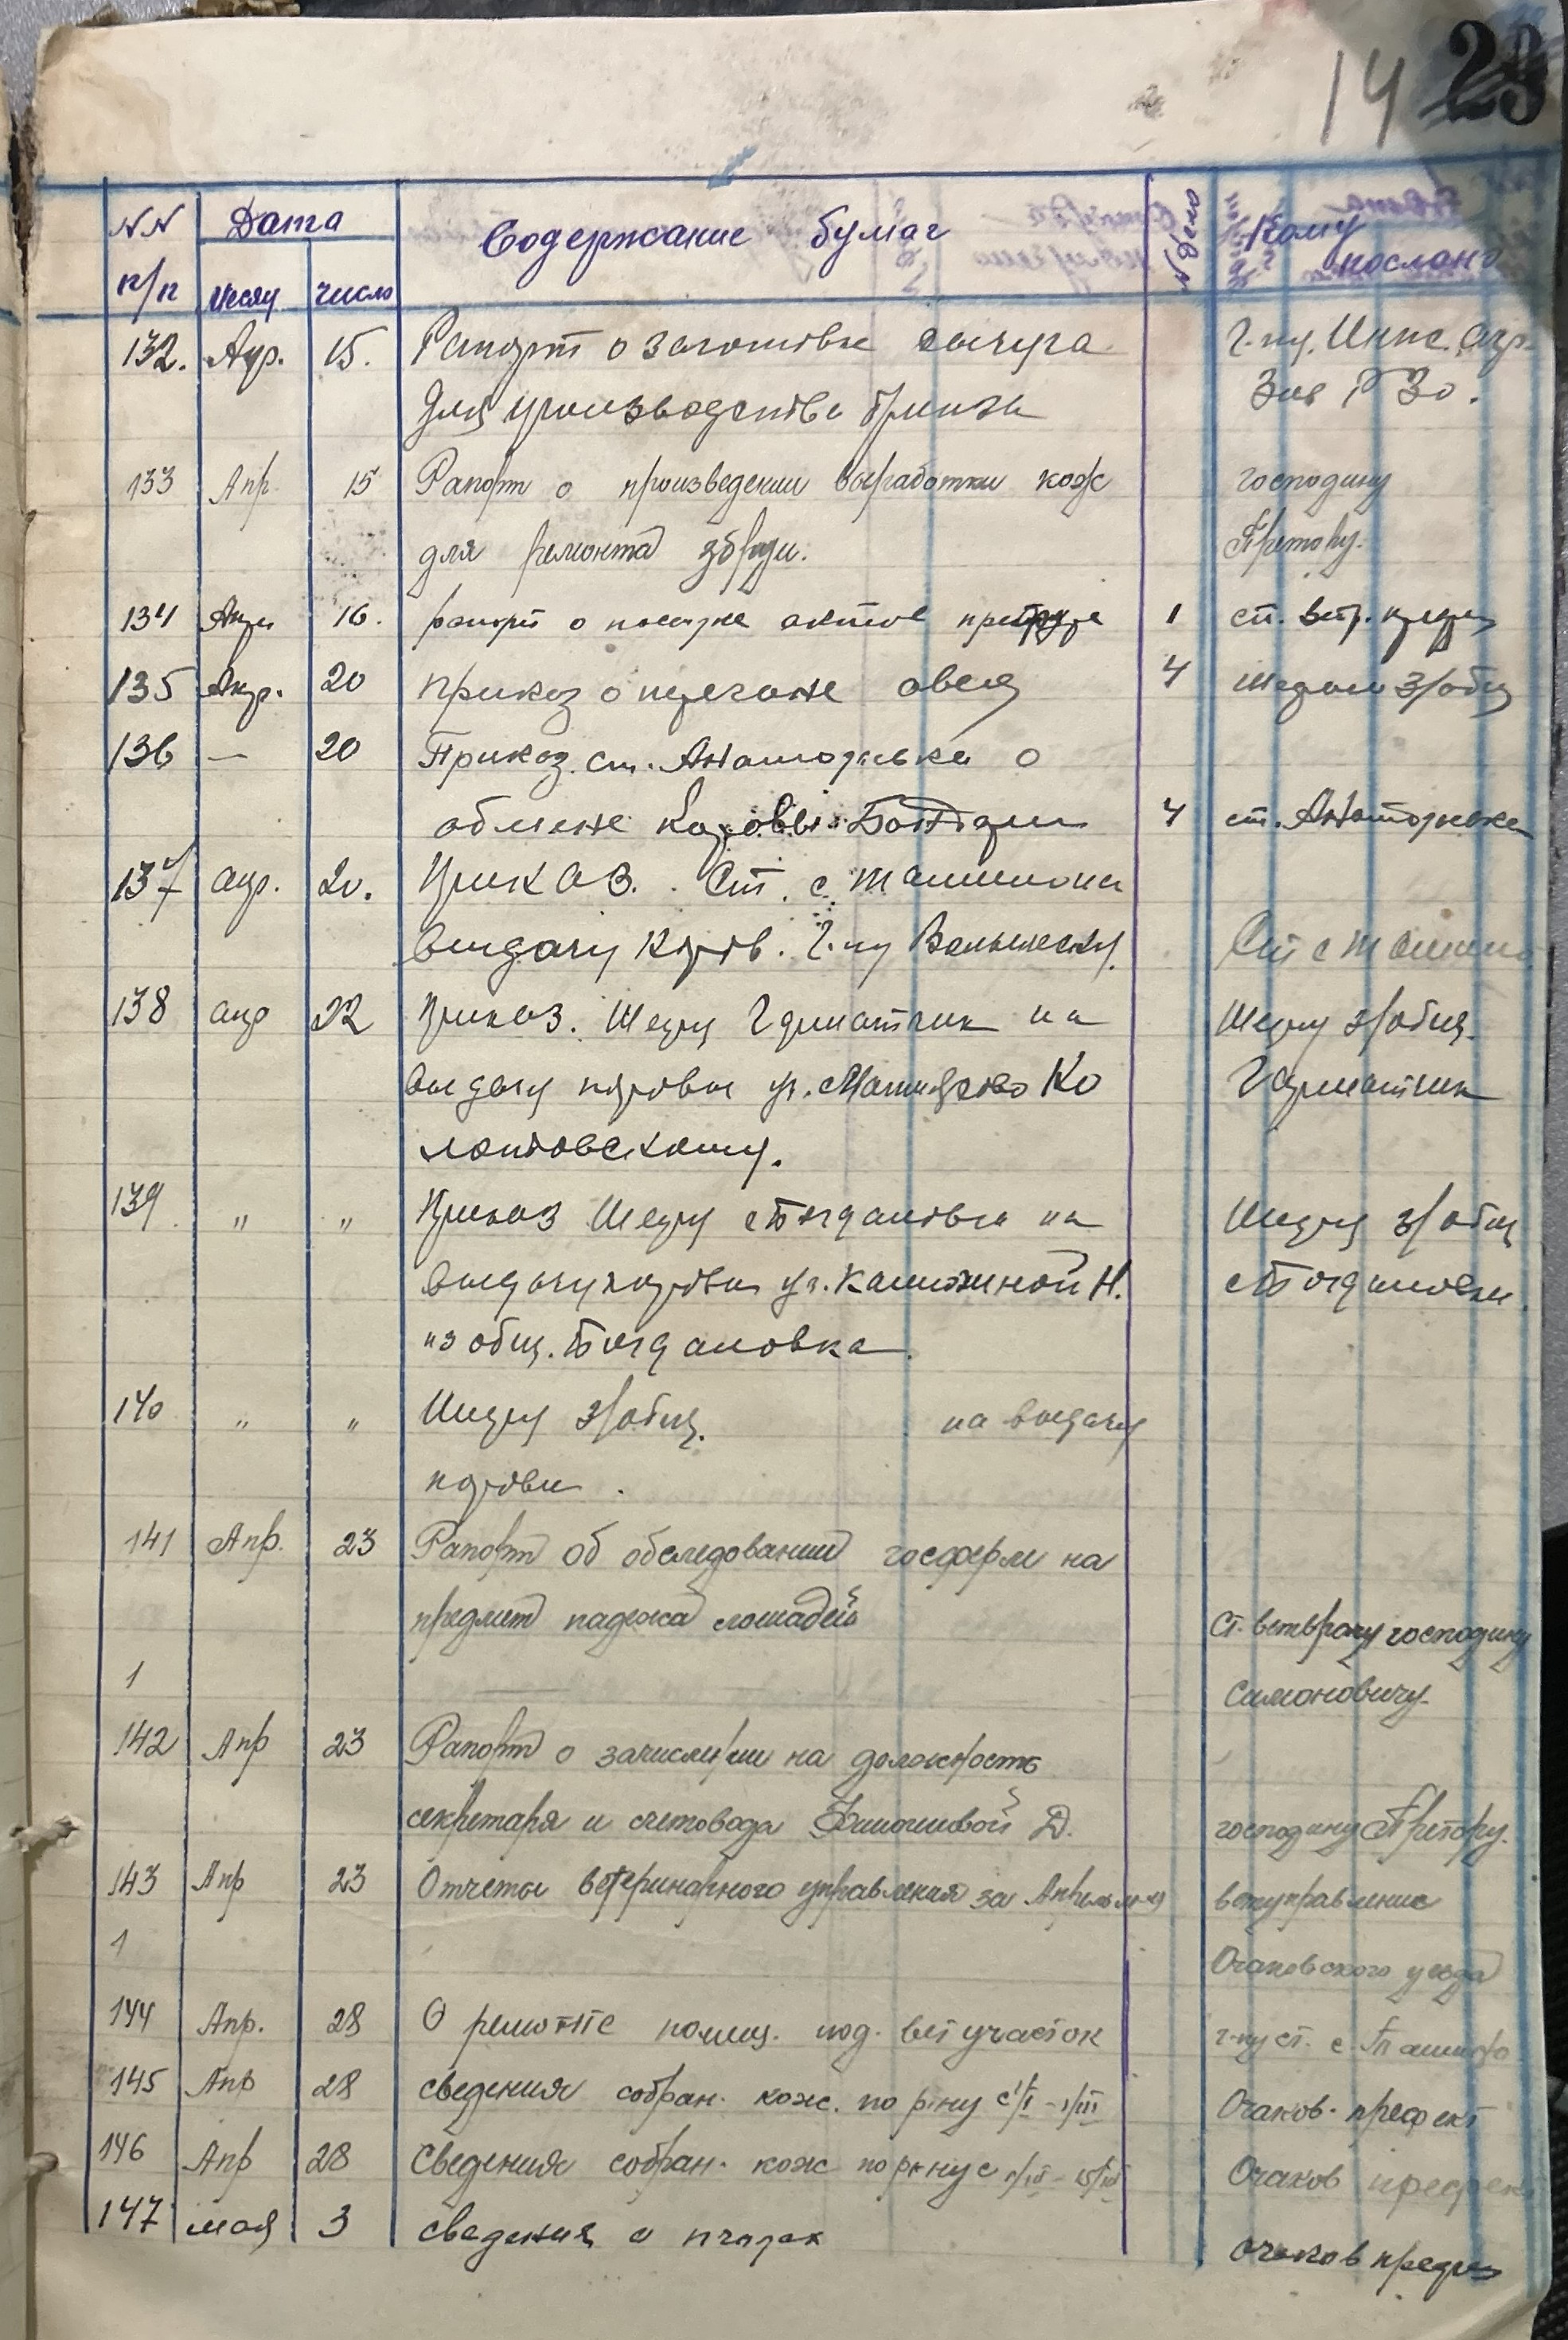 14 23
NN Дата Содержание бумаг № дело Кому
п/п месяц число послано
132. Апр. 15. Рапорт о заготовке сычуга Г-ну. Инсп. Агр.
для производства брынзы Зав РЗО.
133 Апр. 15 Рапорт о произведении выработки кож господину
для ремонта збруи. Претору.
134 Апр 16. рапорт о актов 1 ст. вет.
135 Апр. 20 приказ о овец 4 Шефам з/общ
136 — 20 Приказ. ст. Анатольевка о
обмене коровы 4 ст. Анатольевке
137 апр. 20. Приказ. Ст. с. Ташино на
выдачу коров. Г-ну Ст с Ташино
138 апр 22 Приказ. Шефу на Шефу з/общ.
выдачу коровы гр. Ко
лонтовскому.
139 „ „ Приказ Шефу с Богдановка на Шефу з/общ
выдачу коровы гр. Калюжиной Н. с Богдановки
из общ. Богдановка.
140 „ „ Шефу з/общ. на выдачу
коровы.
141 Апр. 23 Рапорт об обследовании госферм на
предмет падежа лошадей Ст. ветврачу господину
1 Симоновичу.
142 Апр 23 Рапорт о зачислении на должность
секретаря и счетовода Д. господину Претору.
143 Апр 23 Отчеты ветеринарного управления за Апрель м-ц ветуправление
1 Очаковского уезда
144 Апр. 28 О ремонте помещ. под. ветучасток г-ну ст. с. Ташино
145 Апр 28 сведения собран. кож. по р-ну с 1/I - 1/III Очаков. префект
146 Апр 28 Сведения собран. кож по р-ну с 1/III - 15/III Очаков префект
147 мая 3 сведения о пчелах Очаков префек